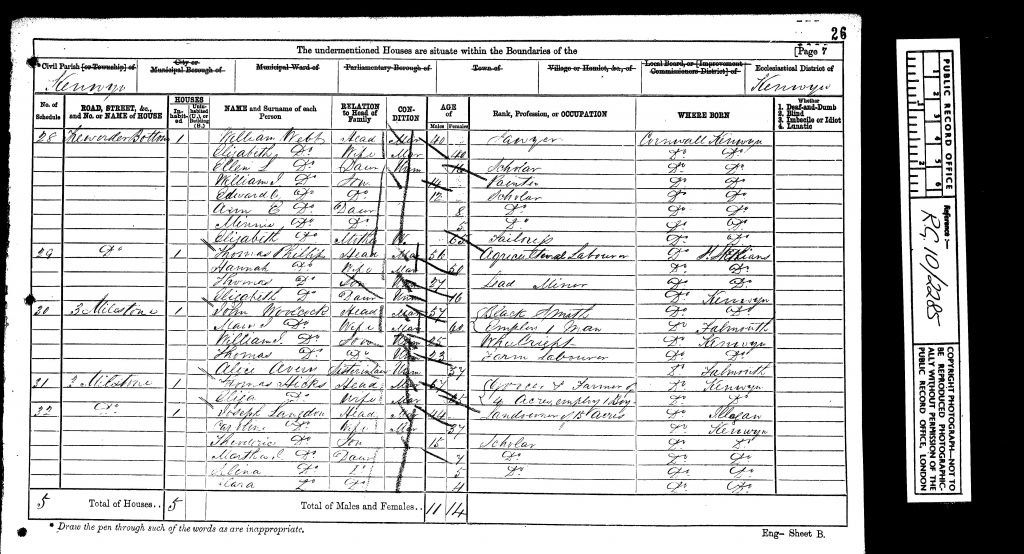 26
The undermentioned Houses are situate within the Boundaries of the
[Page 7
Civil Parish [or Township] of
City or Municipal Borough of
Municipal Ward of
Parliamentary Borough of
Town of
Village or Hamlet, &c., of
Local Board, or [Improvement Commissioners District] of
Ecclesiastical District of
Kenwyn
Kenwyn
No. of Schedule
ROAD, STREET, &c., and No. or NAME of HOUSE
HOUSES
In-habit-ed
Unin-habited (U.), or Building (B.)
NAME and Surname of each Person
RELATION to Head of Family
CON-DITION
AGE of
Males
Females
Rank, Profession, or OCCUPATION
WHERE BORN
Whether
1. Deaf-and-Dumb
2. Blind
3. Imbecile or Idiot
4. Lunatic
28 1 William Webb Head Mar 40 Sawyer Cornwall Kenwyn
Elizabeth Do Wife Mar 40 Do Do
Ellen Do Daur Unm 16 Scholar Do Do
William Do Son 14 Do Do
Edward Do Do 12 Scholar Do Do
Ann E Do Daur 8 Do Do Do
Minnie Do Do 5 Do Do Do
Elizabeth Do Mother W 65 Tailoress Do Do
29 Do 1 Thomas Phillips Head Mar Agricultural Labourer Do
Hannah Do Wife Mar 50 Do Do
Thomas Do Son 27 Lead Miner Do Do
Elizabeth Do Daur Unm 16 Do Kenwyn
20 3 Milestone 1 John Head Mar 57 Black Smith Do
Mary Do Wife Mar 60 Employ 1 Man Do Falmouth
William Do Son Unm 25 Do Kenwyn
Thomas Do Do Unm 23 Farm Labourer Do Do
Alice Avery Sister in law Unm 57 Do Falmouth
21 3 Milestone 1 Thomas Hicks Head Mar Grocer & Farmer of Do Kenwyn
Eliza Do Wife Mar 4 Acres employ 1 Boy Do Do
22 Do 1 Joseph Langdon Head Mar 44 Landowner of 15 Acres Do Illogan
Caroline Do Wife Mar 37 Do Kenwyn
Do Son 15 Scholar Do Do
Martha Do Daur 7 Do Do Do
Selena Do Do 5 Do Do Do
Clara Do Do 4 Do Do
5 Total of Houses.. 5 Total of Males and Females.. 11 14
* Draw the pen through such of the words as are inappropriate.
Eng- Sheet B.
PUBLIC RECORD OFFICE
1 2 3 4 5 6
Reference :-
RG 10/2285
COPYRIGHT PHOTOGRAPH-NOT TO BE REPRODUCED PHOTOGRAPHICALLY WITHOUT PERMISSION OF THE PUBLIC RECORD OFFICE, LONDON